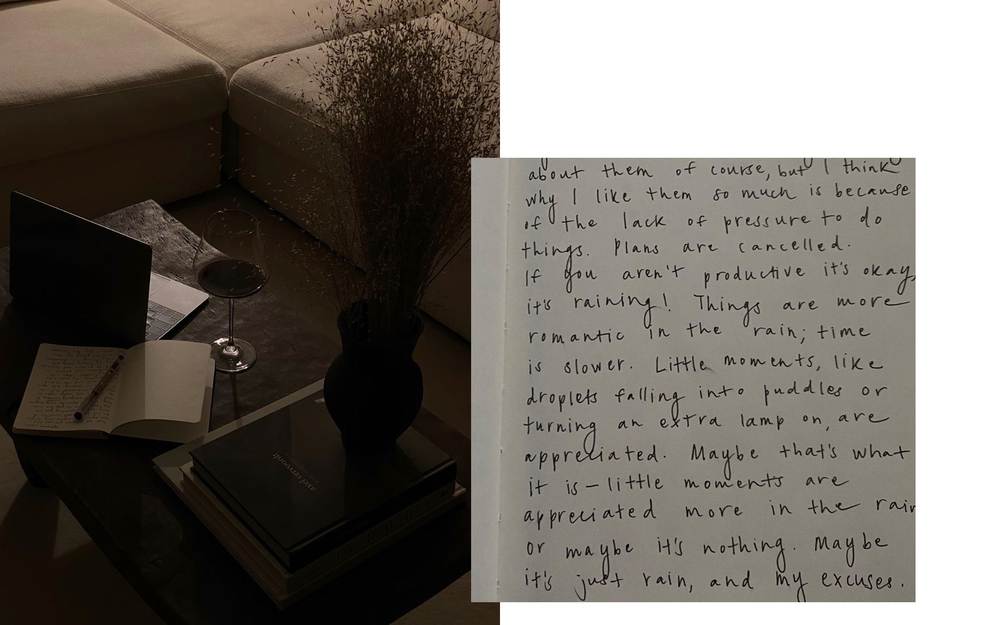 about them of course, but I think
why I like them so much is because
of the lack of pressure to do
things. Plans are cancelled.
If you aren't productive it's okay,
it's raining! Things are more
romantic in the rain; time
is slower. Little moments, like
droplets falling into puddles or
turning an extra lamp on, are
appreciated. Maybe that's what
it is – little moments are
appreciated more in the rain
or maybe it's nothing. Maybe
it's just rain, and my excuses.